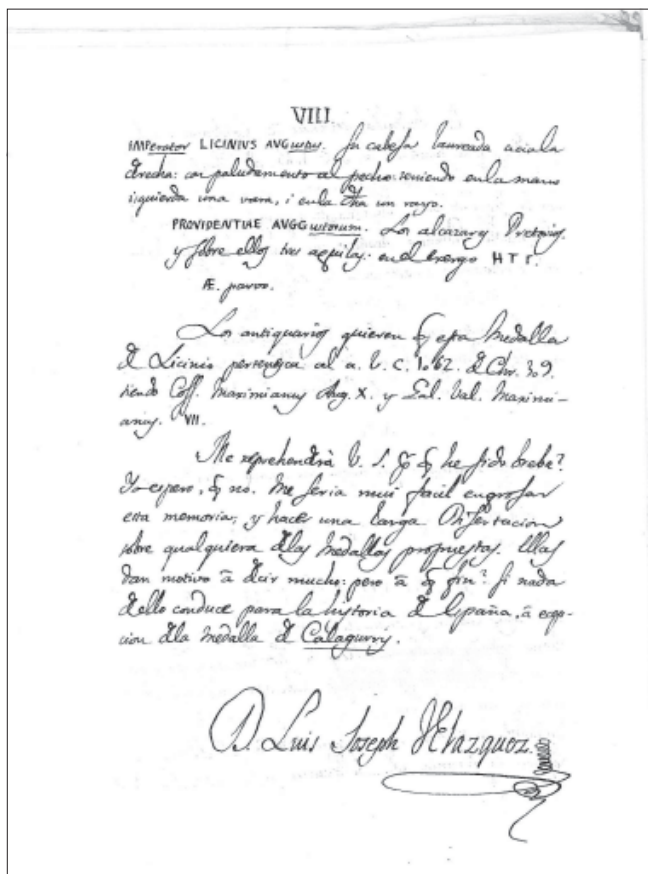 VIII.
IMPerator LICINIVS AVGustus. Su cabesa laureada acia la
derecha: con paludamento al pecho: teniendo en la mano
izquierda una vara, i en la dha un rayo.
PROVIDENTIAE AVGGustorum. Los alcazares Pretorios.
y sobre ellos tres aguilas. en el exergo H T Γ.
Æ. parvo.
Los antiquarios quieren q̃ esta Medalla
de Licinio pertenezca al a. V. C. 1062. de Chr. 309.
siendo Coss. Maximianus Aug. X. y Gal. Val. Maximi-
anus. VII.
Me reprehendrà V. S. q̃ he sido brebe?
Yo espero, q̃ no. Me seria mui facil engrosar
esta memoria, y hacer una larga Disertacion
sobre qualquiera de las Medallas propuestas. Ellas
dan motivo â decir mucho: pero â q̃ fin? si nada
de ello conduce para la historia de España, â excep-
cion de la Medalla de Calagurris.
D. Luis Joseph Velazquez.